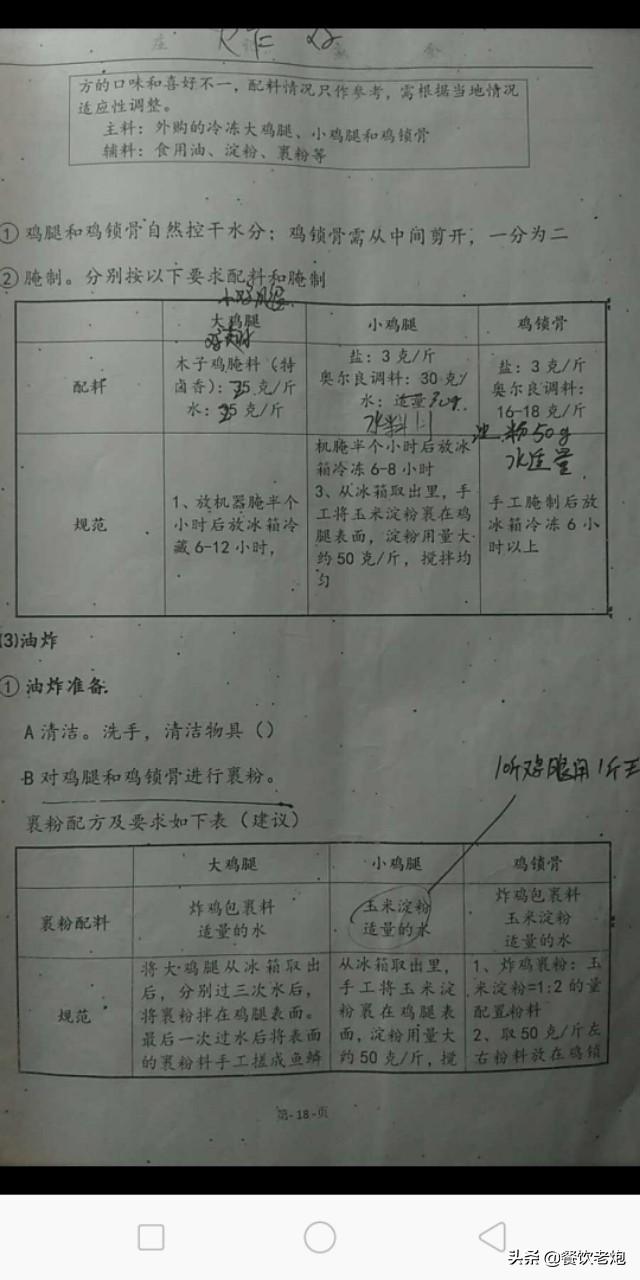 方的口味和喜好不一，配料情况只作参考，需根据当地情况
适应性调整。
主料：外购的冷冻大鸡腿、小鸡腿和鸡锁骨
辅料：食用油、淀粉、裹粉等
① 鸡腿和鸡锁骨自然控干水分；鸡锁骨需从中间剪开，一分为二
② 腌制。分别按以下要求配料和腌制
大鸡腿
小鸡腿
鸡锁骨
配料
木子鸡腌料（特
卤香）：35克/斤
水：35克/斤
盐：3克/斤
奥尔良调料：30克/
水：适量 30g
水料1:1
盐：3克/斤
奥尔良调料：
16-18克/斤
粉50g
水适量
规范
1、放机器腌半个
小时后放冰箱冷
藏6-12小时，
机腌半个小时后放冰
箱冷冻6-8小时
3、从冰箱取出里，手
工将玉米淀粉裹在鸡
腿表面，淀粉用量大
约50克/斤，搅拌均
匀
手工腌制后放
冰箱冷冻6小
时以上
(3)油炸
① 油炸准备.
A 清洁。洗手，清洁物具（）
B 对鸡腿和鸡锁骨进行裹粉。
10斤鸡腿用1斤玉
裹粉配方及要求如下表（建议）
大鸡腿
小鸡腿
鸡锁骨
裹粉配料
炸鸡包裹料
适量的水
玉米淀粉
适量的水
炸鸡包裹料
玉米淀粉
适量的水
规范
将大鸡腿从冰箱取出
后，分别过三次水后，
将裹粉拌在鸡腿表面。
最后一次过水后将表面
的裹粉料手工搓成鱼鳞
从冰箱取出里，
手工将玉米淀
粉裹在鸡腿表
面，淀粉用量大
约50克/斤，搅
1、炸鸡裹粉：玉
米淀粉=1:2的量
配置粉料
2、取50克/斤左
右粉料放在鸡锁
第-18-页
头条 @餐饮老炮